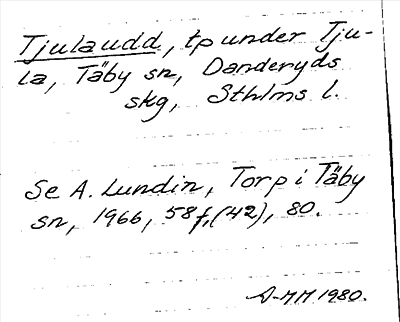 Tjulaudd, tp under Tju-
la, Täby sn, Danderyds
skg, Sthlms l.
Se A. Lundin, Torp i Täby
sn, 1966, 58f,(42), 80.
A-MM 1980.